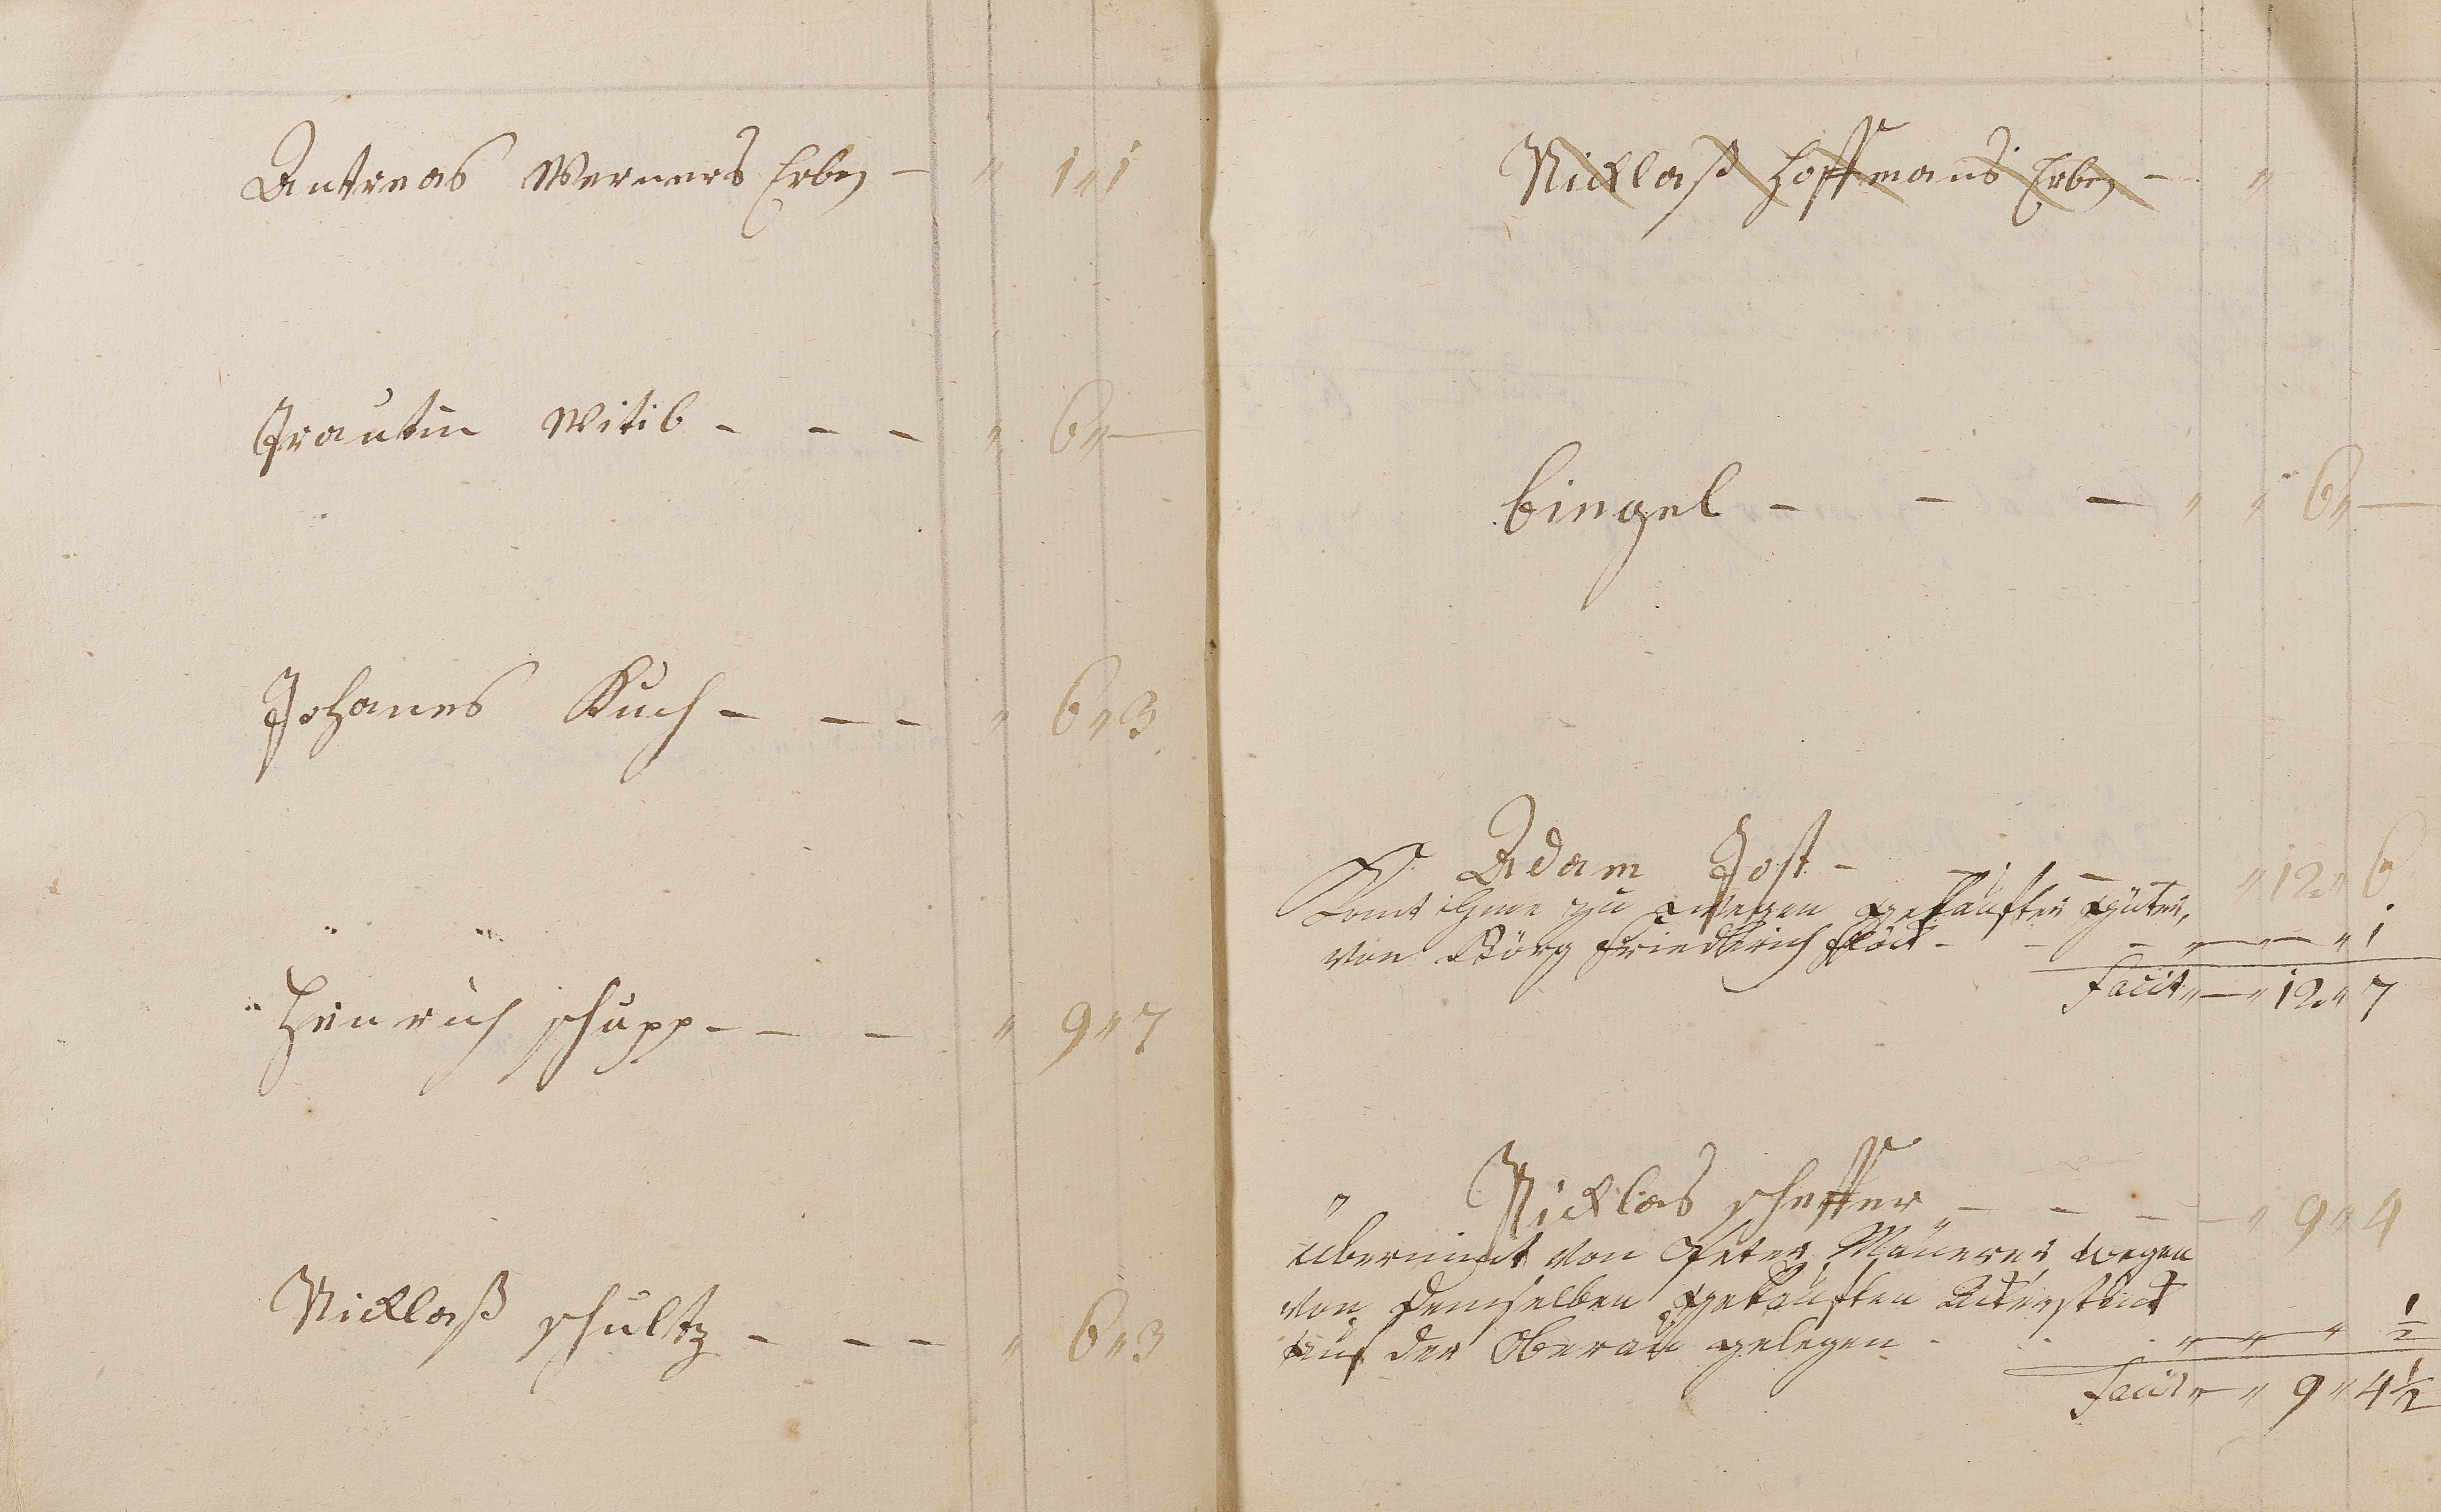 Antreas Werners Erben – " 1 " 1
Grautin Witib – – – " 6 " –
Johanes Ruch – – – " 6 " 3
Henrich schupp – – – " 9 " 7
Nicklaß schultz – – – " 6 " 3
Nicklaß Hoffmans Erben – "
bingel – – – " " 6 " –
Adam Jost – – – " 12 " 6
Komt ihme zu wegen gekaufter güter,
von Görg Friedrich – – " – " – " 1
Facit " – " 12 " 7
" Nicklas scheffer – – – – " 9 " 4
übernimt von Peter Mäurer, wegen
von demselben gekauften Ackerstück
auf der Oberau gelegen – . . " – " – " ½
Facit " – " 9 " 4½